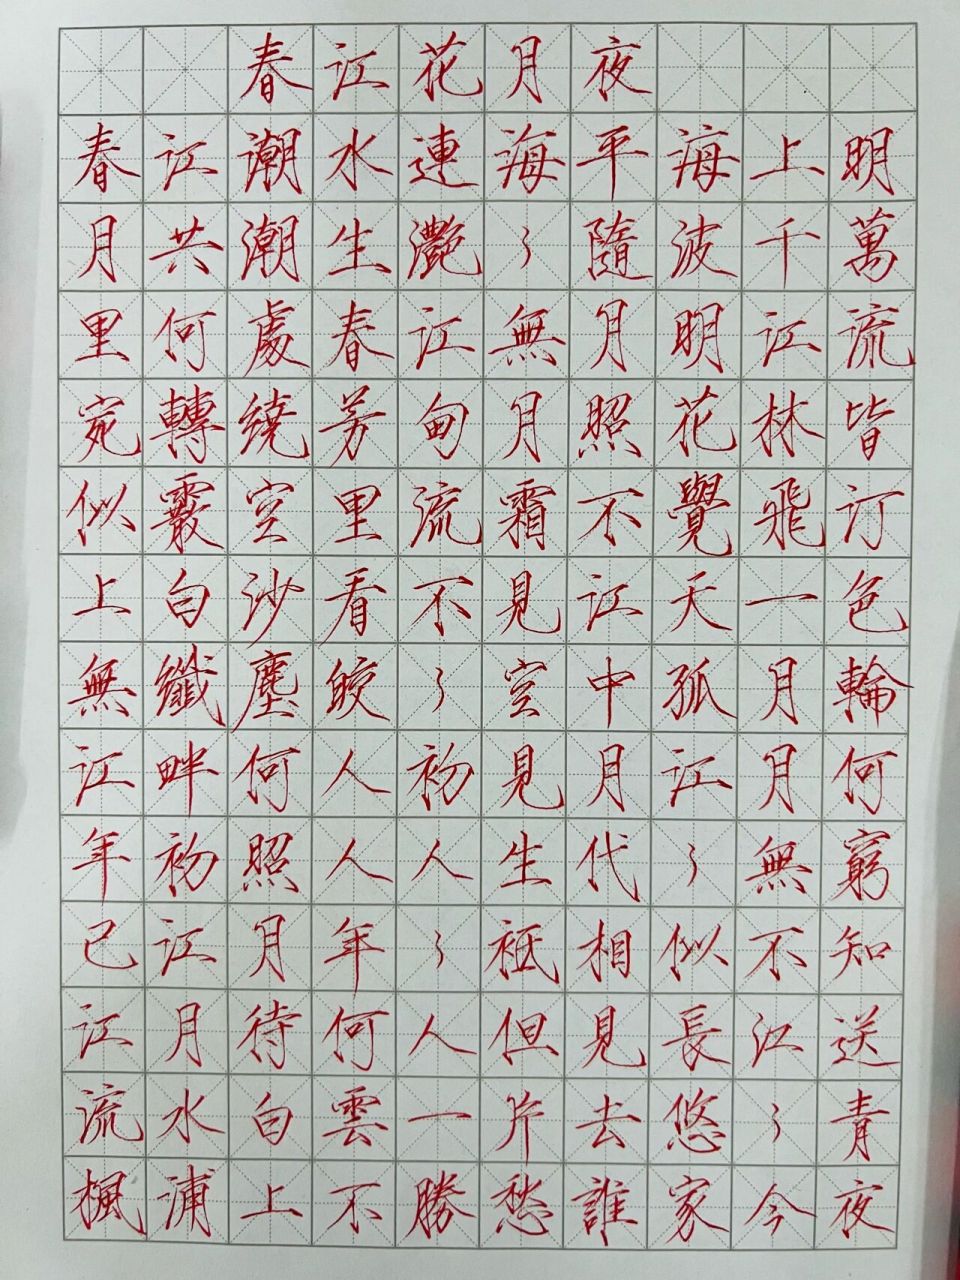 春江花月夜
春江潮水連海平海上明
月共潮生灔〻隨波千萬
里何處春江無月明江流
宛轉繞芳甸月照花林皆
似霰空里流霜不覺飛汀
上白沙看不見江天一色
無纖塵皎〻空中孤月輪
江畔何人初見月江月何
年初照人人生代〻無窮
已江月年〻祗相似不知
江月待何人但見長江送
流水白雲一片去悠〻青
楓浦上不勝愁誰家今夜